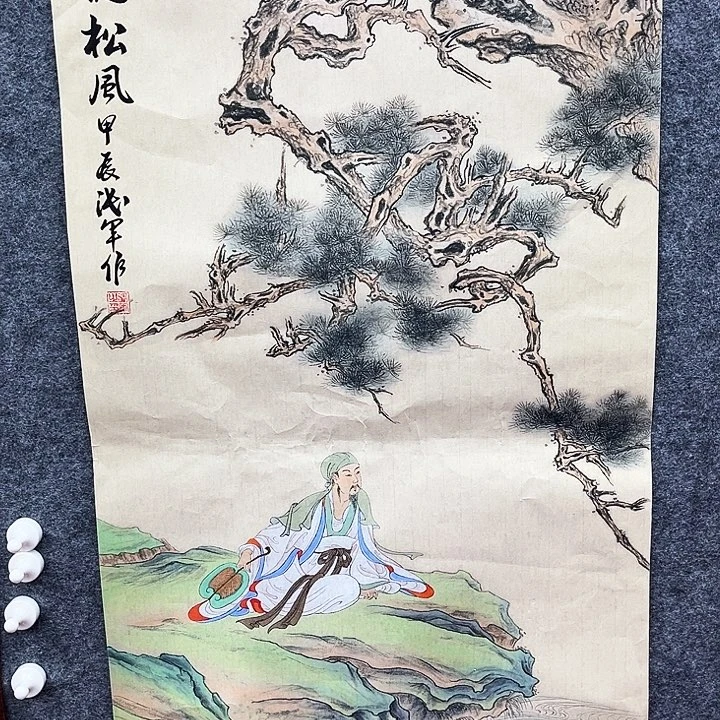 松風甲辰军作